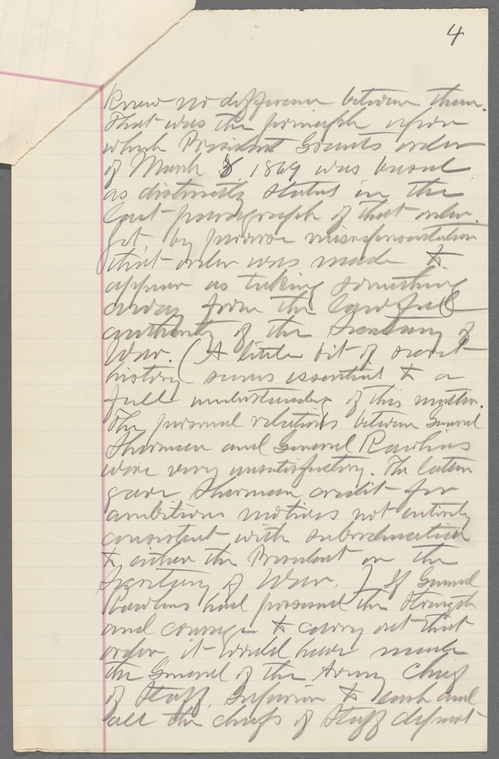 4
knew no difference between them.
That was the principle upon
which President Grant's order
of March 8, 1869 was based
as distinctly stated in the
last paragraph of that order.
Yet, by perverse misrepresentation
that order was made to
appear as taking something
away from the lawful
authority of the Secretary of
War. (A little bit of secret
history seems essential to a
full understanding of this matter.
The personal relations between General
Sherman and General Rawlins
were very unsatisfactory. The latter
gave Sherman credit for
ambitious motives not entirely
consistent with subordination
to either the President or the
Secretary of War.) If General
Rawlins had possessed the strength
and courage to carry out that
order, it would have made
the General of the Army Chief
of Staff, superior to each and
all the chiefs of staff depart-